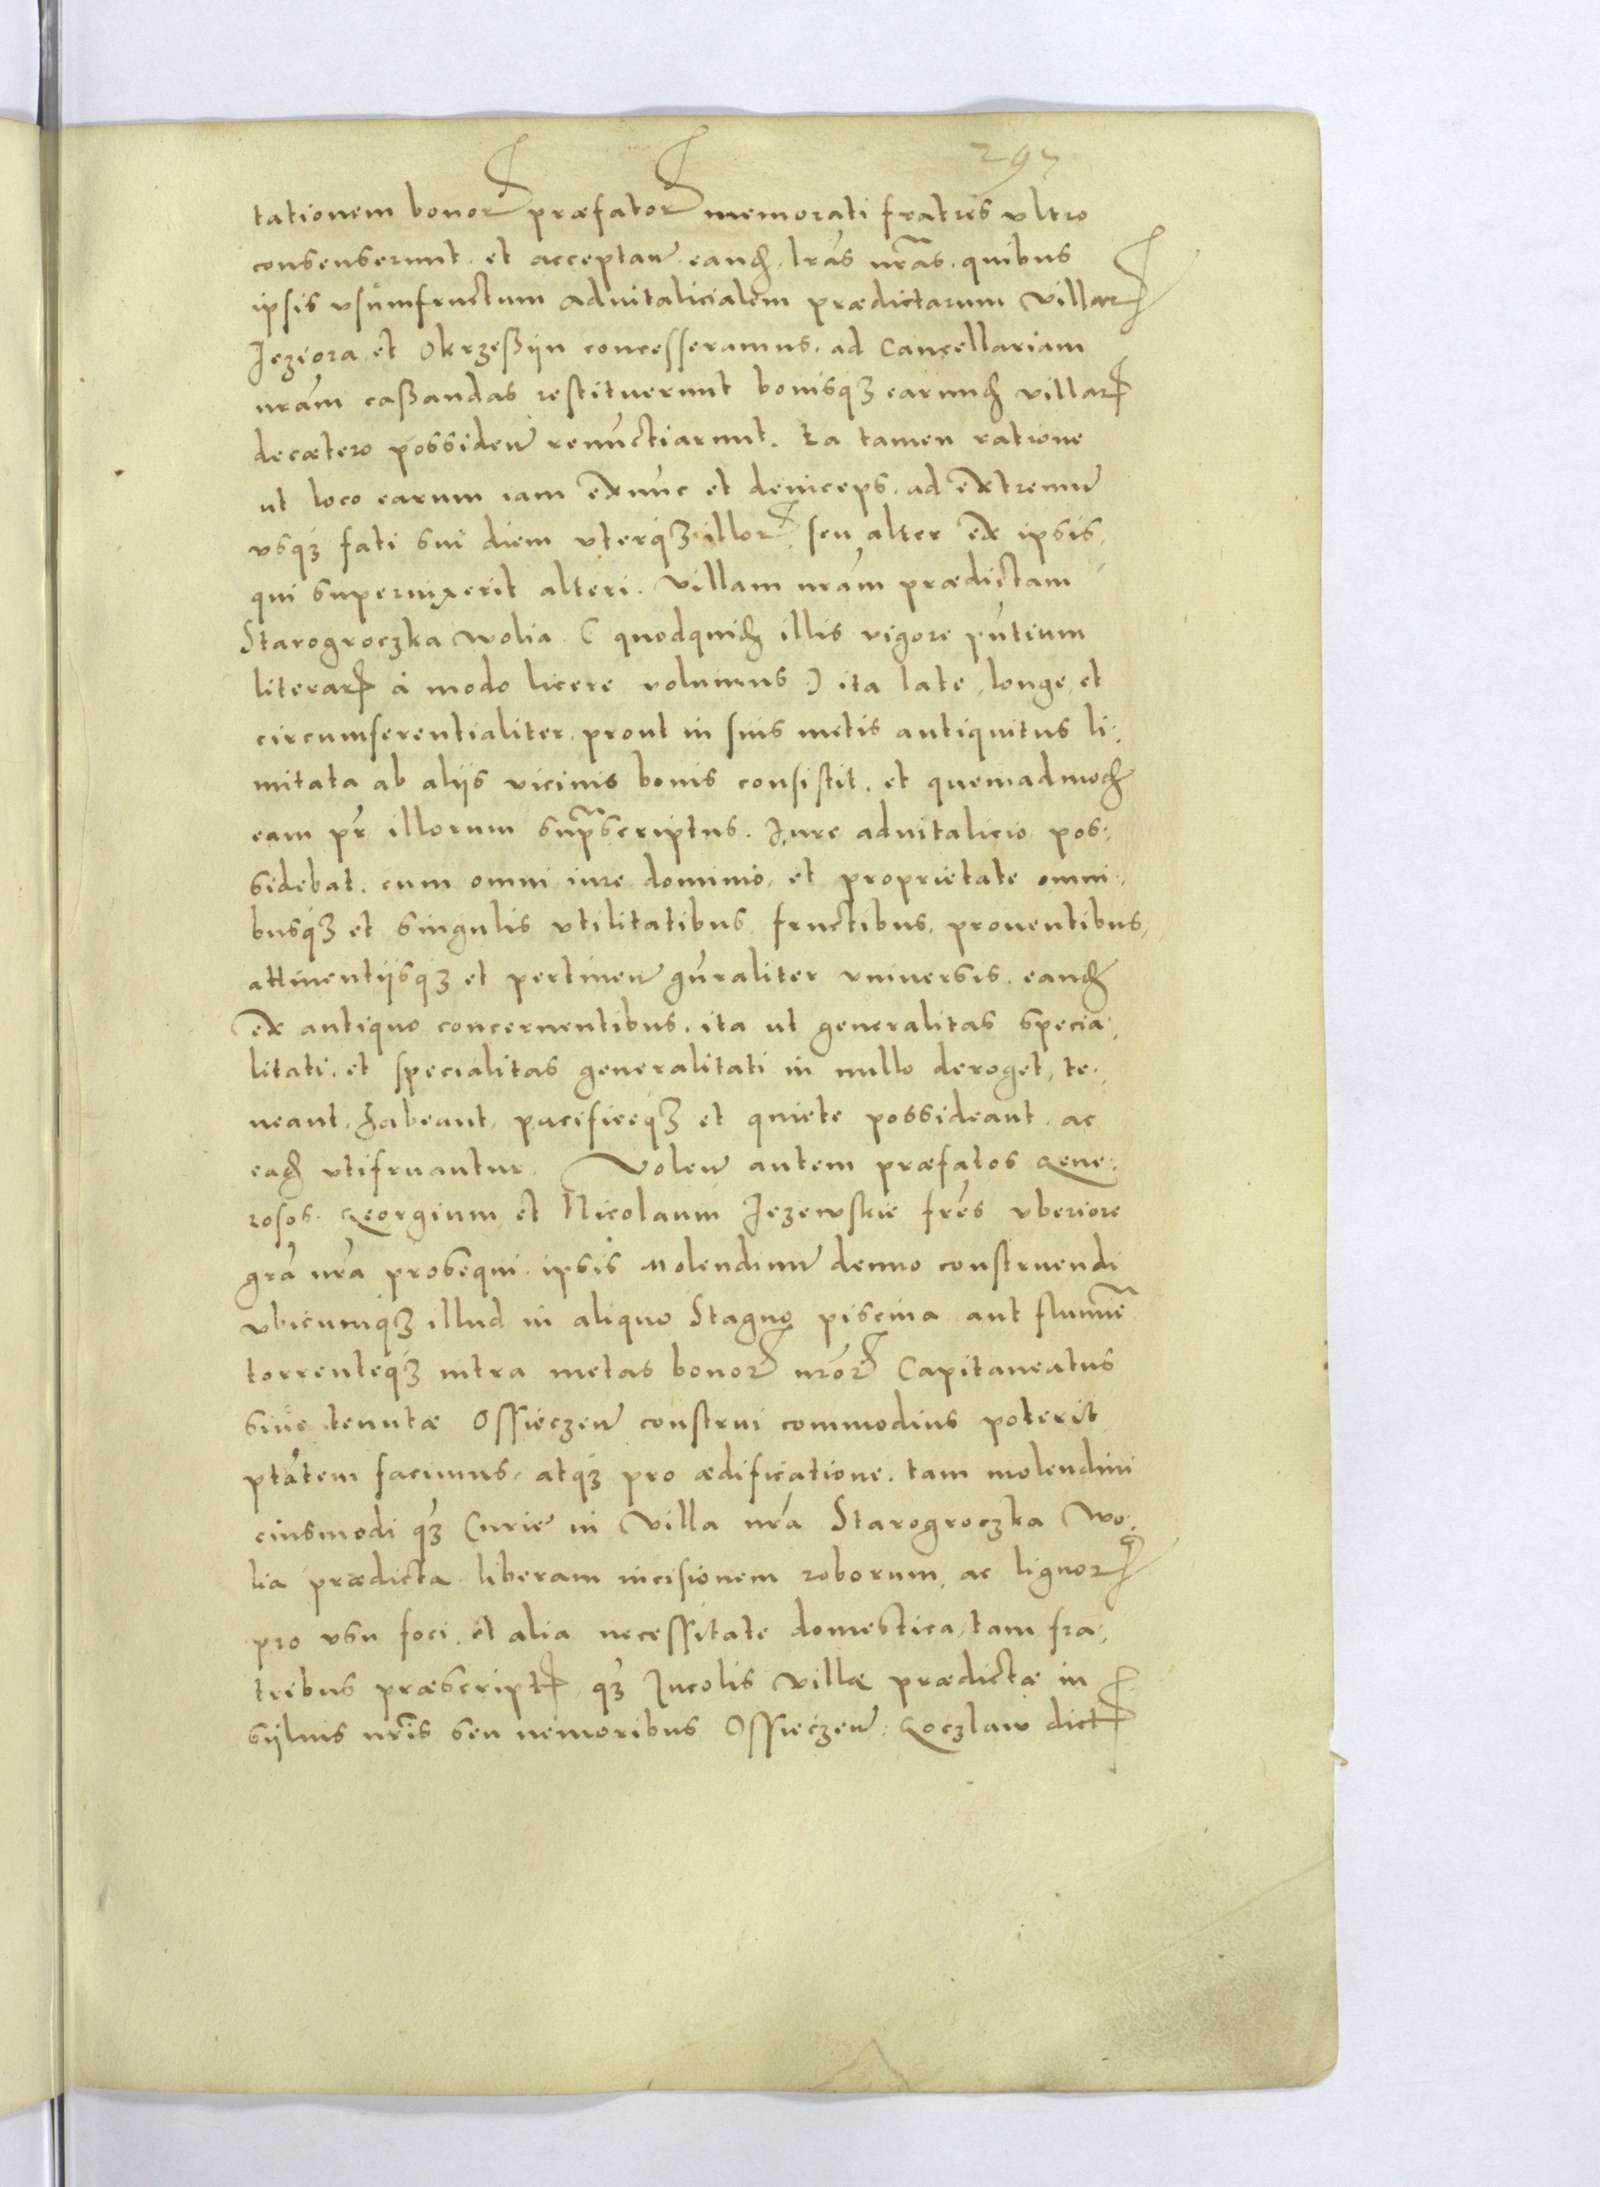 297
tationem bonoꝝ præfatoꝝ memorati fratres vltro
consenserunt. et acceptan̄. eandꝫ. lr̃as nr̃as. quibus
ipsis vsumfructum aduitalicialem prædictarum villaꝝ
Jeziora et Okrzeßÿn concesseramus. ad Cancellariam
nr̃am caßandas restituerunt bonisqꝫ earundꝫ villaꝝ
decætero possiden̄ renunctiarunt. Ea tamen ratione
ut loco earum iam exnunc et deinceps. ad extremũ
vsqꝫ fati sui diem vterqꝫ illoꝝ. seu alter ex ipsis,
qui superuixerit alteri. Villam nr̃am prædictam
Starogroczka wolia ( quodquidꝫ illis vigore pñtium
literaꝝ à modo licere volumus ) ita late, longe, et
circumferentialiter. prout in suis metis antiquitus li:
mitata ab alÿs vicinis bonis consistit. et quemadmodꝫ
eam pr̃ illorum supˢcriptus. Jure aduitalicio pos:
sidebat. cum omni iure dominio, et proprietate omni:
busqꝫ et singulis vtilitatibus. fructibus. prouentibus,
attinentÿsqꝫ et pertinen̄ gñraliter vniuersis. eandꝫ
ex antiquo concernentibus. ita ut generalitas specia:
litati. et specialitas generalitati in nullo deroget, te:
neant, habeant, pacificeqꝫ et quiete possideant. ac
eadꝫ vtifruantur. Volen̄ autem præfatos Gene:
rosos. Georgium et Nicolaum Jezewskie fr̃es vberiore
gr̃a nr̃a prosequi. ipsis Molendinũ denuo construendi
vbicumqꝫ illud in aliquo Stagno piscina aut flumĩe
torrenteqꝫ intra metas bonoꝝ nr̃oꝝ Capitaneatus
siue tenutæ Ossieczen̄ construi commodius poterit
ptãtem facimus, atqꝫ pro ædificatione. tam molendini
eiusmodi qꝫ Curiæ in Villa nr̃a Starogroczka Wo:
lia prædicta liberam incisionem roborum, ac lignoꝝ
pro vsu foci. et alia necessitate domestica, tam fra:
tribus præscriptꝭ, qꝫ Incolis villæ prædictæ in
sÿluis nr̃is seu nemoribus Ossieczen̄. Goczlaw dictꝭ